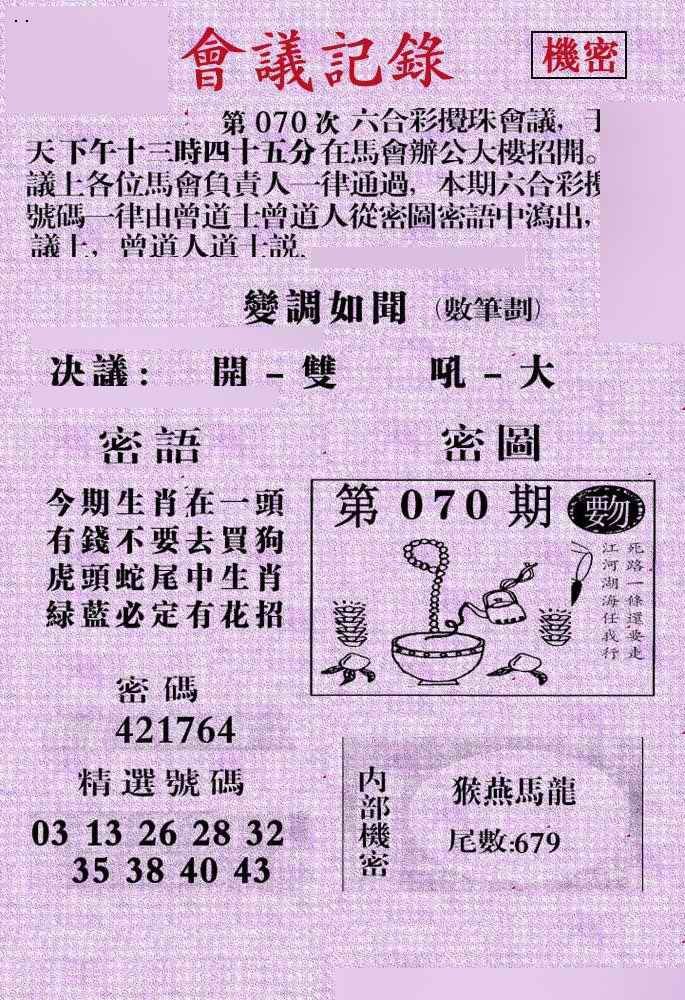 會議記錄
機密
第 070 次 六合彩攪珠會議，
天下午十三時四十五分在馬會辦公大樓招開。
議上各位馬會負責人一律通過，本期六合彩攪
號碼一律由曾道士曾道人從密圖密語中瀉出，
議上，曾道人道士説
變調如聞（數筆劃）
决議：開－雙 吼－大
密語
今期生肖在一頭
有錢不要去買狗
虎頭蛇尾中生肖
緑藍必定有花招
密圖
第 070 期
死路一條還要走
江河湖海任我行
密碼
421764
精選號碼
03 13 26 28 32
35 38 40 43
内部機密
猴燕馬龍
尾數:679